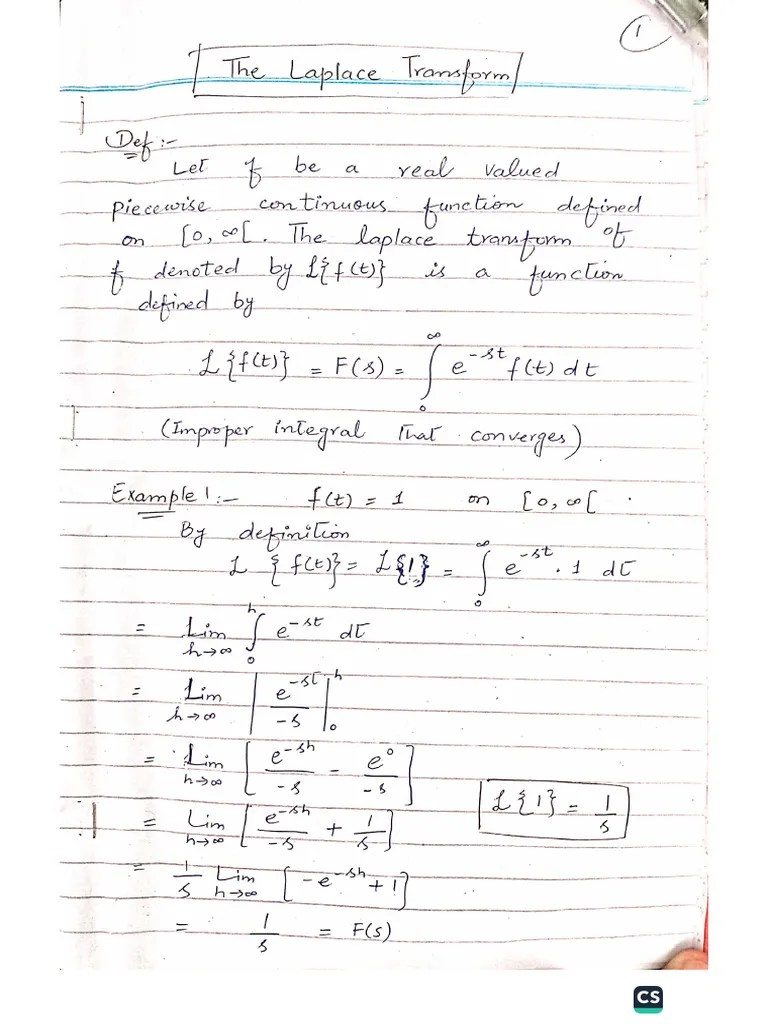 1
The Laplace Transform
Def :-
Let f be a real valued
piecewise continuous function defined
on [0, ∞[. The laplace transform of
f denoted by ℒ{f(t)} is a function
defined by
ℒ{f(t)} = F(s) = ∫₀^∞ e^{-st} f(t) dt
(Improper integral that converges)
Example 1:- f(t) = 1 on [0, ∞[ .
By definition
ℒ {f(t)} = ℒ{1} = ∫₀^∞ e^{-st} . 1 dt
= Lim h→∞ ∫₀^h e^{-st} dt
= Lim h→∞ | e^{-st} / -s |₀^h
= Lim h→∞ [ e^{-sh} / -s - e^0 / -s ]
ℒ{1} = 1/s
= Lim h→∞ [ e^{-sh} / -s + 1/s ]
= 1/s Lim h→∞ [ -e^{-sh} + 1 ]
= 1/s = F(s)
CS